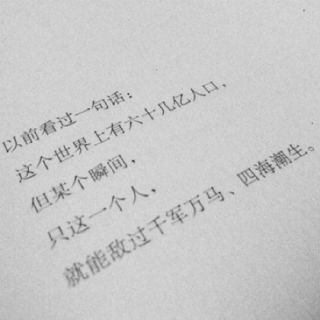 以前看过一句话：
这个世界上有六十几亿人口，
但某个瞬间，
只这一个人，
就能敌过千军万马、四海潮生。